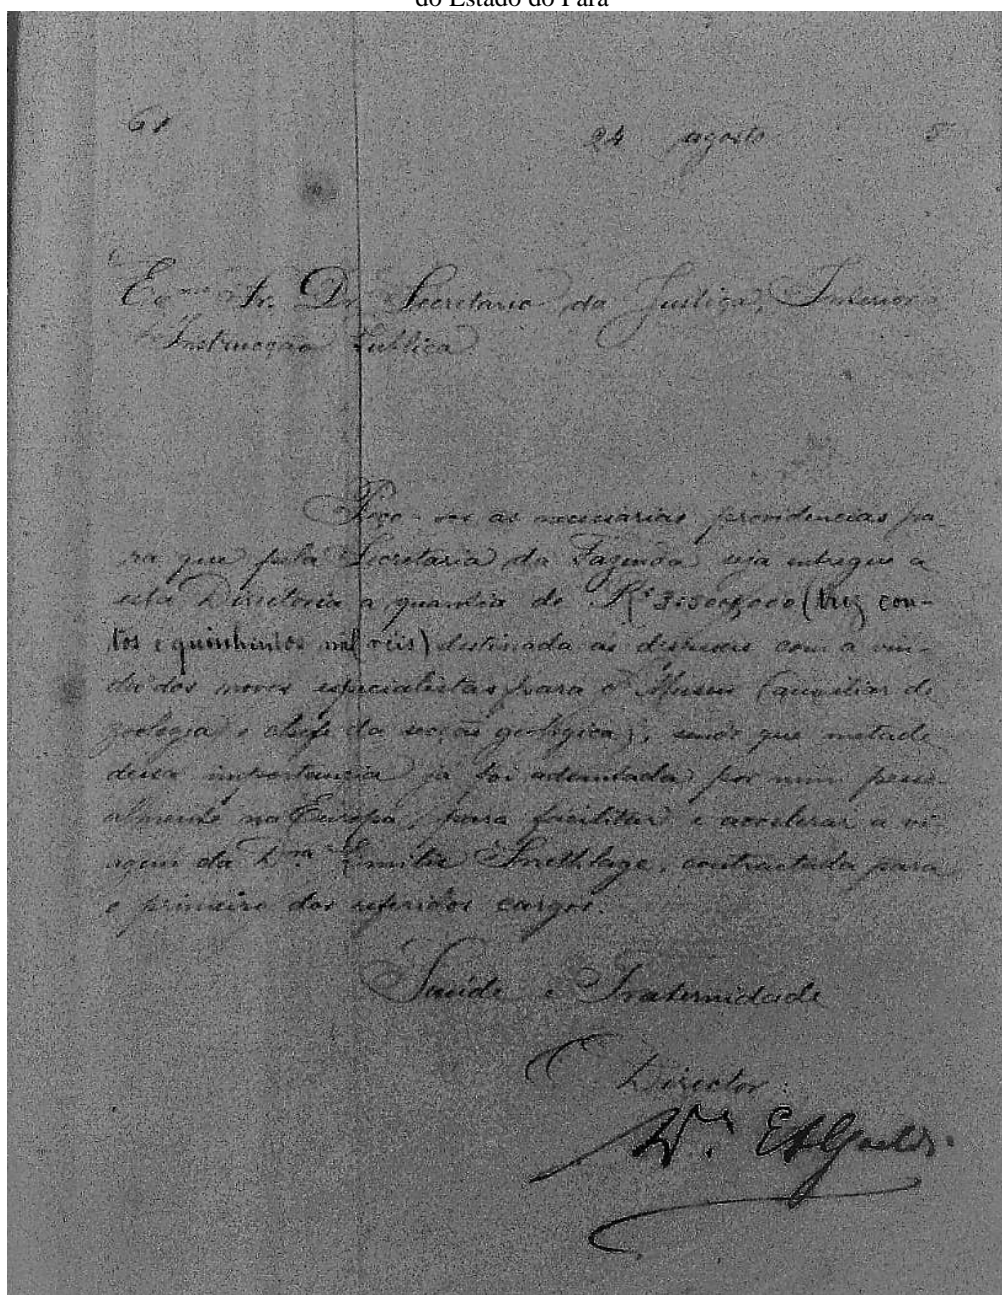 do Estado do Pará
61
24 agosto 5
Exmo Sr. Dr. Secretario da Justiça, Interior e
Instrucção Publica
Peço-vos as necessarias providencias pa-
ra que pela Secretaria da Fazenda seja entregue a
esta Directoria a quantia de Rs 3:500$000 (trez con-
tos e quinhentos mil réis) destinada ás despezas com a vin-
da dos novos especialistas para o Museu (auxiliar de
zoologia e chefe da secção geologica), sendo que metade
desta importancia já foi adeantada por mim pesso-
almente na Europa, para facilitar e accelerar a vi-
agem da Dra Emilia Snethlage, contractada para
o primeiro dos referidos cargos.
Saúde e Fraternidade
O Director:
Dr. E A Goeldi.